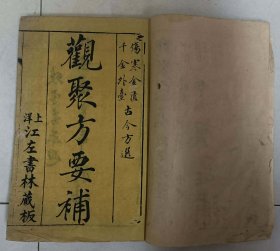 傷寒金匱
千金外臺
古今方選
觀聚方要補
上洋
江左書林藏板